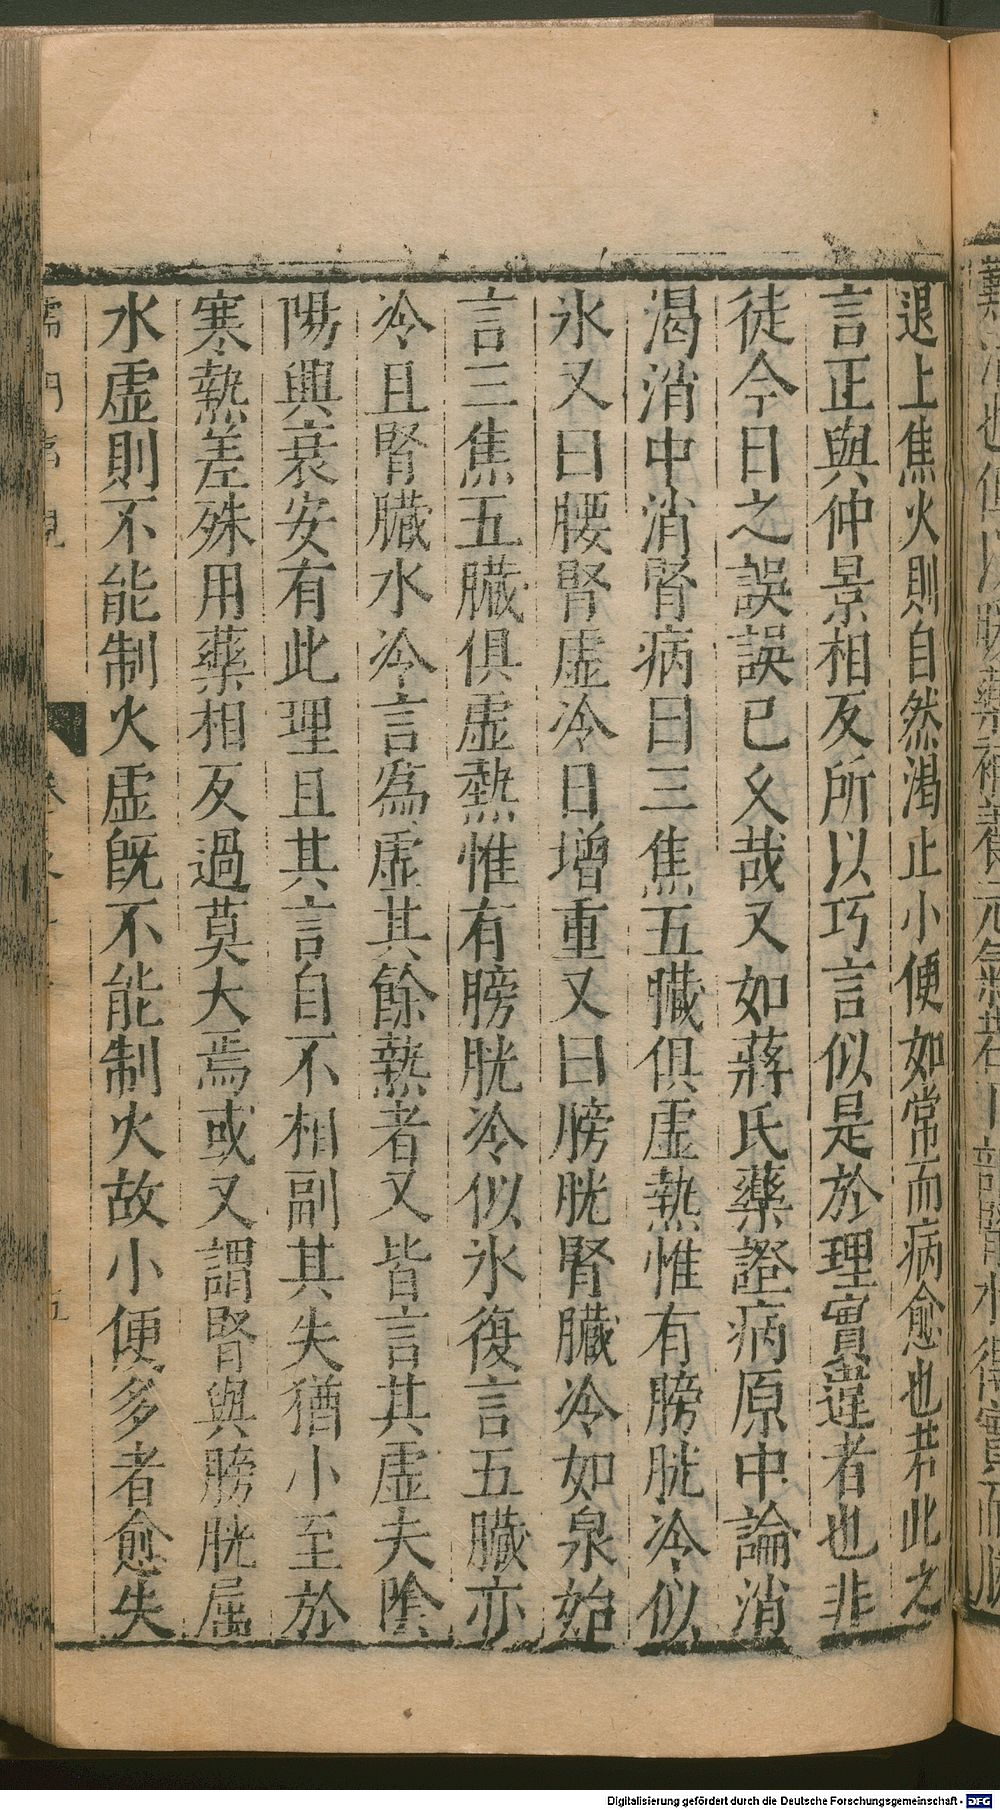 退上焦火則自然渴止小便如常而病愈也若此之
言正與仲景相反所以巧言似是於理實違者也非
徒今日之誤誤已乆哉又如蔣氏藥證病原中論消
渴消中消腎病曰三焦五臟俱虛熱惟有膀胱冷似
氷又曰腰腎虛冷日增重又曰膀胱腎臟冷如泉始
言三焦五臟俱虛熱惟有膀胱冷似氷復言五臟亦
冷且腎臟水冷言為虛其餘熱者又皆言其虛夫陰
陽興衰安有此理且其言自不相副其失猶小至於
寒熱差殊用藥相反過莫大焉或又謂腎與膀胱屬
水虛則不能制火虛既不能制火故小便多者愈失
儒門事親
五
Digitalisierung gefördert durch die Deutsche Forschungsgemeinschaft - DFG